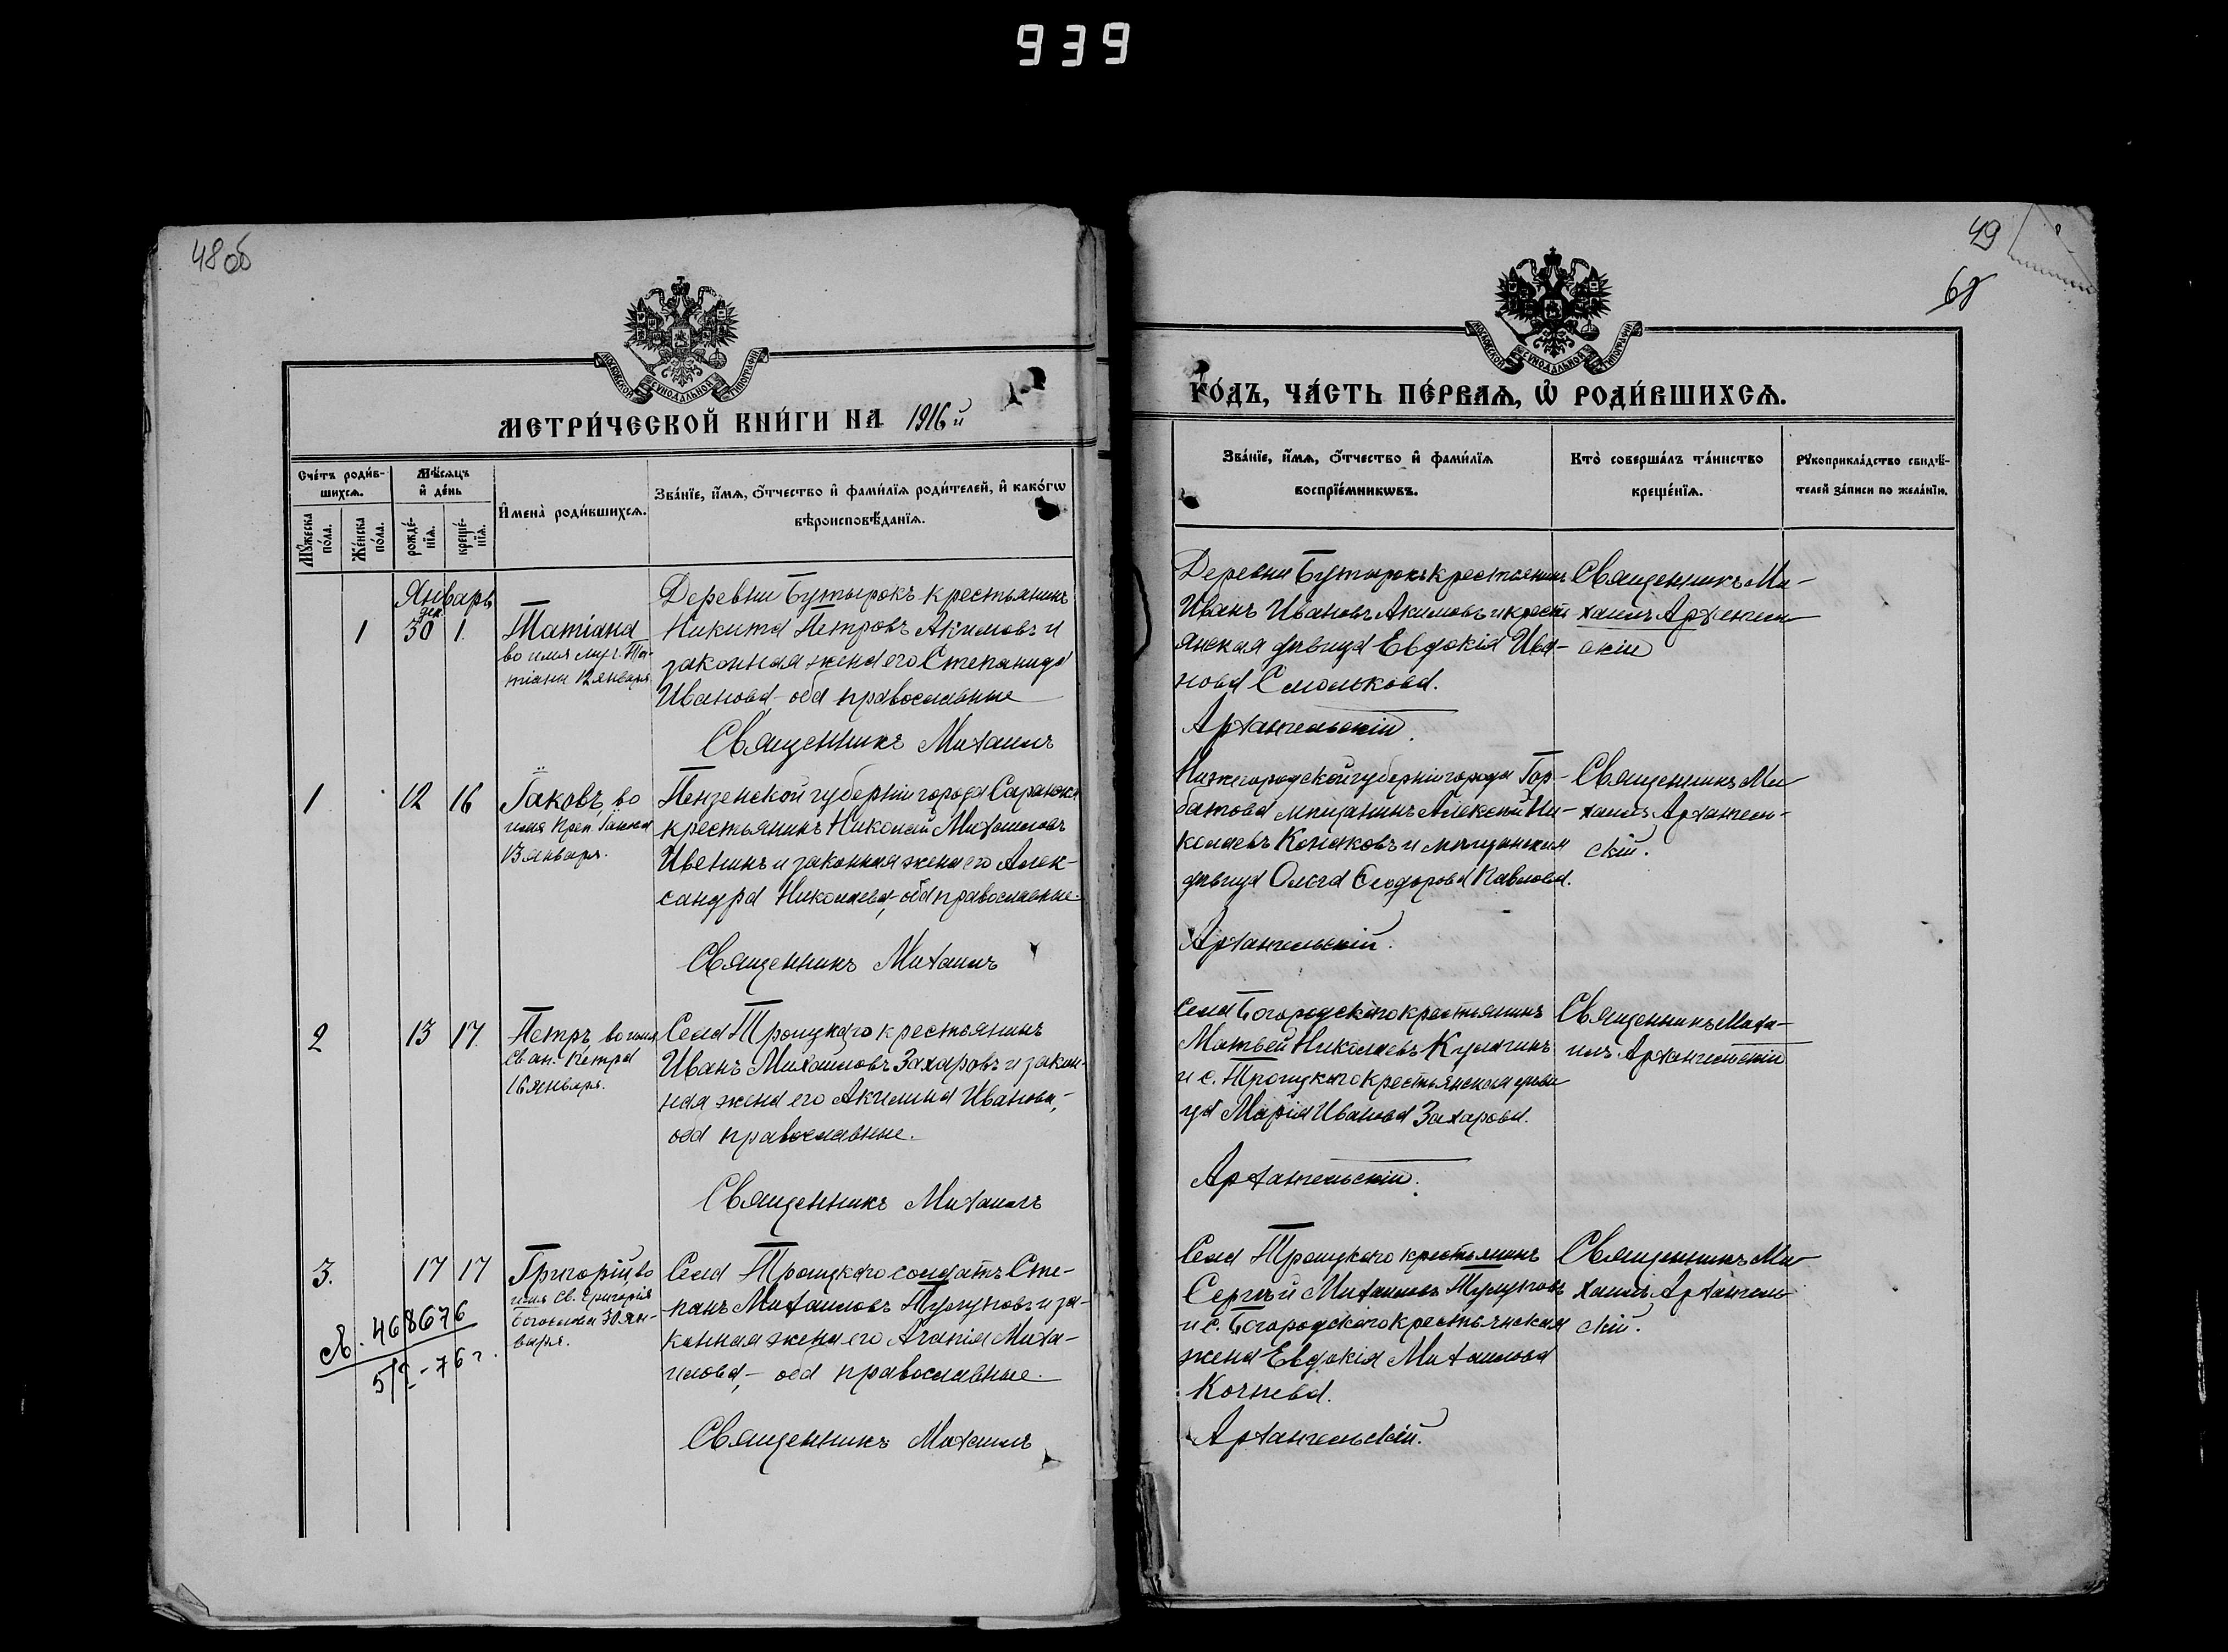 939
48об
МОСКОВСКОЙ СУНОДАЛЬНОЙ ТИПОГРАФІИ
МЕТРИ́ЧЕСКОЙ КНИ́ГИ НА 1916й
Сче́тъ роди́в-
шихсѧ.
Мѣ́сѧцъ
и҆ де́нь
Мꙋ́жеска по́ла.
Же́нска по́ла.
рожде́-
нїѧ.
креще́-
нїѧ.
И҆мена̀ роди́вшихсѧ.
Зва́нїе, и҆́мѧ, ѻ҆́тчество и҆ фами́лїѧ роди́телей, и҆ како́гѡ
вѣроисповѣ́данїѧ.
Январь
1
дек.
30 1.
Татіана
во имя муч. Та-
тіаны 12 января.
Деревни Бутырокъ крестьянинъ
Никита Петровъ Акимовъ и
законная жена его Степанида
Иванова - оба православные
Священникъ Михаилъ
1 12 16
Іаковъ, во
имя Преп. Іакова
13 января.
Пензенской губерніи города Саранска
крестьянинъ Николай Михаиловъ
Ивенинъ и законная жена его Алек-
сандра Николаева, - оба православные.
Священникъ Михаилъ
2 13 17.
Петръ, во имя
Св. ап. Петра
16 января.
Села Троицкаго крестьянинъ
Иванъ Михаиловъ Захаровъ и закон-
ная жена его Акилина Иванова, -
оба православные.
Священникъ Михаилъ
3. 17 17
Григорій, во
имя Св. Григорія
Богослова 30 ян-
варя.
№. 468676
5/I - 76 г.
Села Троицкаго солдатъ Сте-
панъ Михаиловъ и за-
конная жена его Агапія Миха-
илова, - оба православные.
Священникъ Михаилъ
49
68
МОСКОВСКОЙ СУНОДАЛЬНОЙ ТИПОГРАФІИ
ГО́ДЪ, ЧА́СТЬ ПЕ́РВАѦ, Ѡ҆ РОДИ́ВШИХСѦ.
Зва́нїе, и҆́мѧ, ѻ҆́тчество и҆ фами́лїѧ
воспрїе́мникѡвъ.
Кто̀ соверша́лъ та́инство
креще́нїѧ.
Рꙋкоприкла́дство свидѣ́-
телей за́писи по жела́нїю.
Деревни Бутырокъ крестьянинъ
Иванъ Ивановъ Акимовъ и крестъ
янская дѣвица Евдокія Ива-
нова Смолькова.
Архангельскій.
Священникъ Ми-
хаилъ Архангель
скій
Нижегородской губерніи города Гор-
батова мѣщанинъ Алексѣй Ни-
колаевъ Кондаковъ и мѣщанская
дѣвица Ольга Ѳеодорова Павлова.
Архангельскій.
Священникъ Ми
хаилъ Архангель-
скій.
Села Богородскаго крестьянинъ
Матвѣй Николаевъ Кулагинъ
и с. Троицкаго крестьянская дѣви
ца Марія Иванова Захарова.
Архангельскій.
Священникъ Миха-
илъ Архангельскій
Села Троицкаго крестьянинъ
Сергѣй Михаиловъ
и с. Богородскаго крестьянская
жена Евдокія Михаилова
Кочнева.
Архангельскій.
Священникъ Ми
хаилъ Архангель
скій.